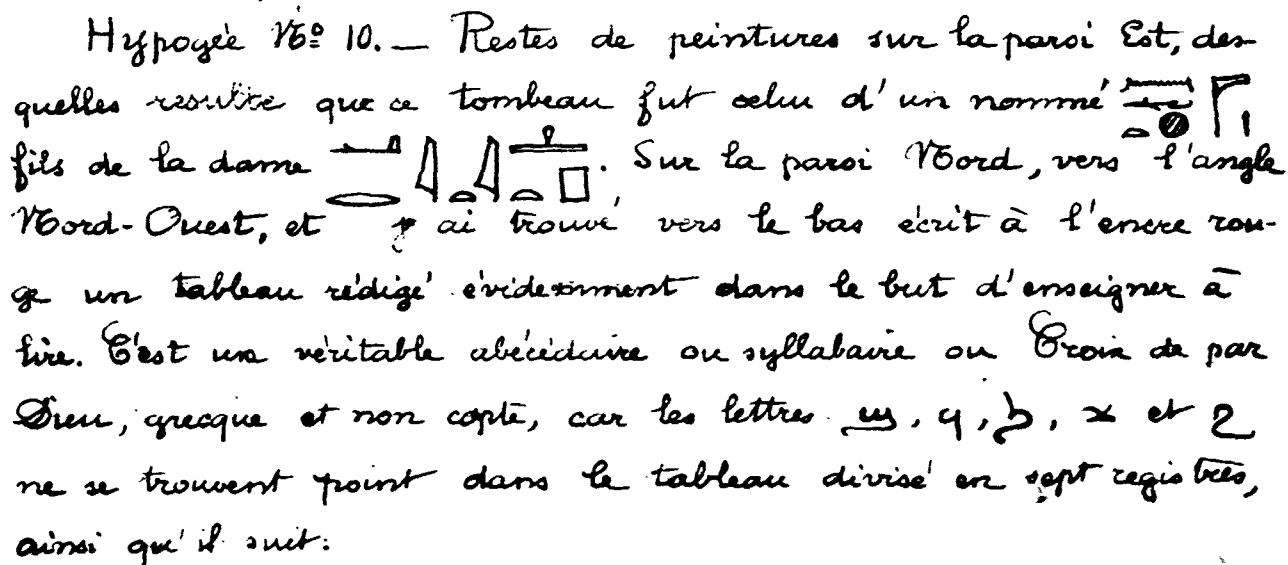 Hypogée Nº 10. — Restes de peintures sur la paroi Est, des-
quelles résulte que ce tombeau fut celui d'un nommé
fils de la dame . Sur la paroi Nord, vers l'angle
Nord-Ouest, et j'ai trouvé vers le bas écrit à l'encre rou-
ge un tableau rédigé évidemment dans le but d'enseigner à
lire. C'est un véritable abécédaire ou syllabaire ou Croix de par
Dieu, grecque et non copte, car les lettres ϣ, ϥ, ϧ, ϫ et ϩ
ne se trouvent point dans le tableau divisé en sept registres,
ainsi qu'il suit: